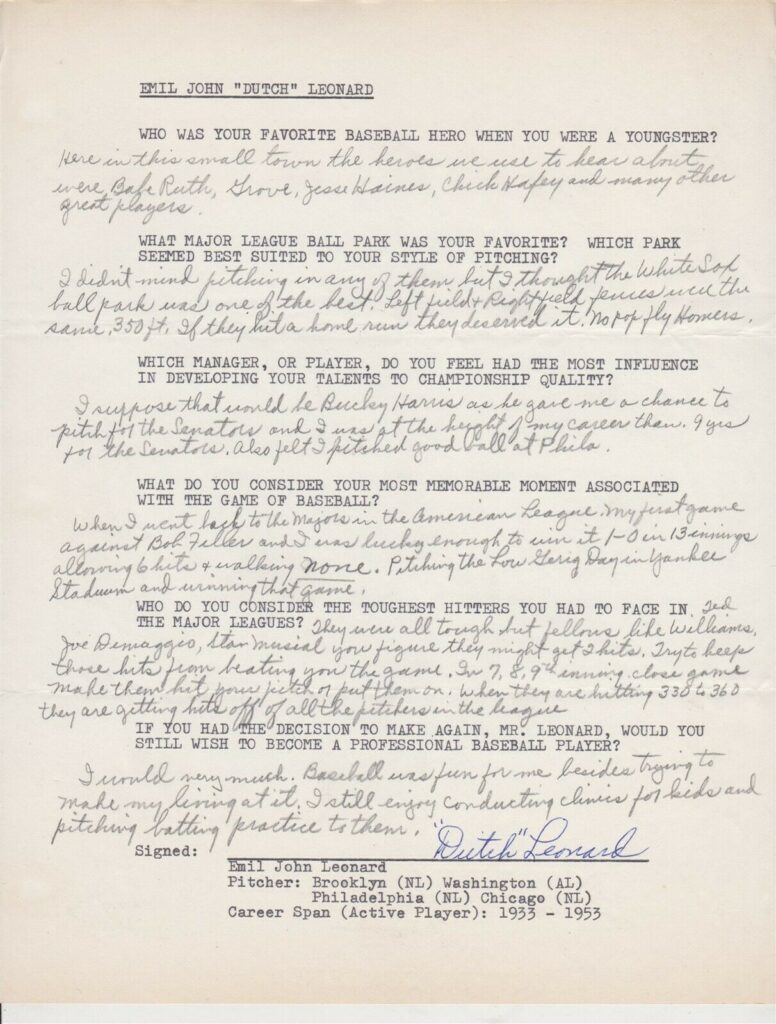 EMIL JOHN "DUTCH" LEONARD
WHO WAS YOUR FAVORITE BASEBALL HERO WHEN YOU WERE A YOUNGSTER?
Here in this small town the heroes we use to hear about
were, Babe Ruth, Grove, Jesse Haines, Chick Hafey and many other
great players.
WHAT MAJOR LEAGUE BALL PARK WAS YOUR FAVORITE? WHICH PARK
SEEMED BEST SUITED TO YOUR STYLE OF PITCHING?
I didn't mind pitching in any of them but I thought the White Sox
ball park was one of the best. Left field & Right field fences were the
same, 350 ft. If they hit a home run they deserved it. No pop fly Homers.
WHICH MANAGER, OR PLAYER, DO YOU FEEL HAD THE MOST INFLUENCE
IN DEVELOPING YOUR TALENTS TO CHAMPIONSHIP QUALITY?
I suppose that would be Bucky Harris as he gave me a chance to
pitch for the Senators and I was at the height of my career than. 9 yrs
for the Senators. Also felt I pitched good ball at Phila.
WHAT DO YOU CONSIDER YOUR MOST MEMORABLE MOMENT ASSOCIATED
WITH THE GAME OF BASEBALL?
When I went back to the Majors in the American League. My first game
against Bob Feller and I was lucky enough to win it 1-0 in 13 innings
allowing 6 hits & walking none. Pitching the Lou Gerig Day in Yankee
Stadium and winning that game.
WHO DO YOU CONSIDER THE TOUGHEST HITTERS YOU HAD TO FACE IN
THE MAJOR LEAGUES? They were all tough but fellows like Ted Williams,
Joe Dimaggio, Stan Musial you figure they might get 2 hits. Try to keep
those hits from beating you the game. In 7, 8, 9th inning close game
make them hit your pitch or put them on. When they are hitting 330 to 360
they are getting hits off of all the pitchers in the league
IF YOU HAD THE DECISION TO MAKE AGAIN, MR. LEONARD, WOULD YOU
STILL WISH TO BECOME A PROFESSIONAL BASEBALL PLAYER?
I would very much. Baseball was fun for me besides trying to
make my living at it. I still enjoy conducting clinics for kids and
pitching batting practice to them.
Signed: "Dutch" Leonard
Emil John Leonard
Pitcher: Brooklyn (NL) Washington (AL)
Philadelphia (NL) Chicago (NL)
Career Span (Active Player): 1933 - 1953